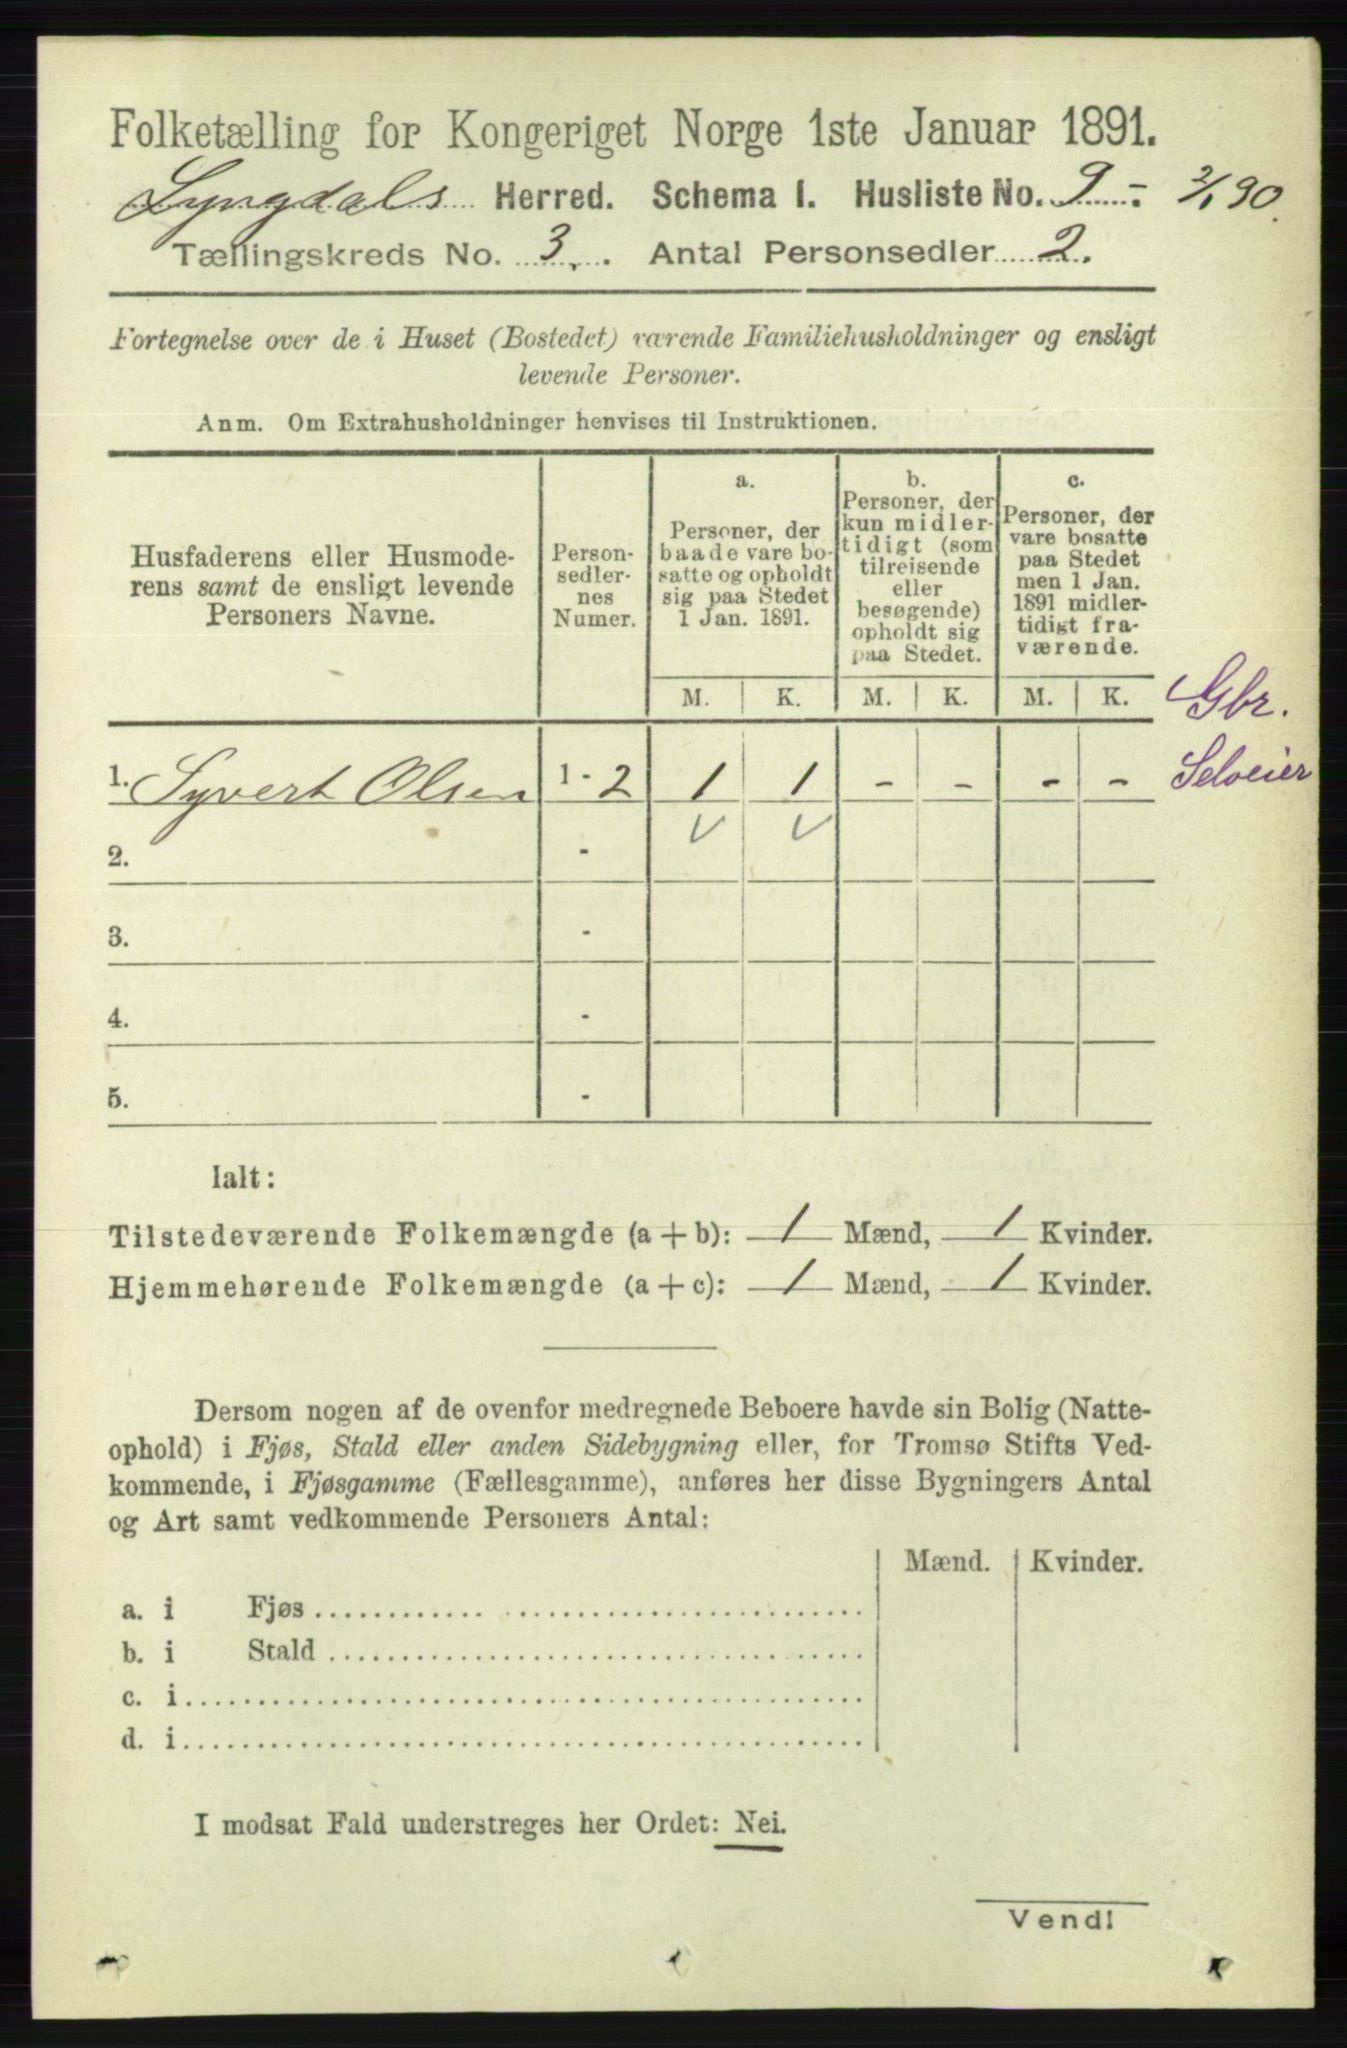 Folketælling for Kongeriget Norge 1ste Januar 1891.
Lyngdals Herred. Schema I. Husliste No. 9 -
Tællingskreds No. 3. Antal Personsedler 2.
Fortegnelse over de i Huset (Bostedet) værende Familiehusholdninger og ensligt
levende Personer.
Anm. Om Extrahusholdninger henvises til Instruktionen.
Husfaderens eller Husmode-
rens samt de ensligt levende
Personers Navne.
Person-
sedler-
nes
Numer.
a.
Personer, der
baade vare bo-
satte og opholdt
sig paa Stedet
1 Jan. 1891.
b.
Personer, der
kun midler-
tidigt (som
tilreisende
eller
besøgende)
opholdt sig
paa Stedet.
c.
Personer, der
vare bosatte
paa Stedet
men 1 Jan.
1891 midler-
tidigt fra-
værende.
M. K. M. K. M. K.
Gbr.
1. Syvert Olsen 1 - 2 1 1 - - - - Selveier
2. -
3. -
4. -
5. -
Ialt:
Tilstedeværende Folkemængde (a + b): 1 Mænd, 1 Kvinder.
Hjemmehørende Folkemængde (a + c): 1 Mænd, 1 Kvinder.
Dersom nogen af de ovenfor medregnede Beboere havde sin Bolig (Natte-
ophold) i Fjøs, Stald eller anden Sidebygning eller, for Tromsø Stifts Ved-
kommende, i Fjøsgamme (Fællesgamme), anføres her disse Bygningers Antal
og Art samt vedkommende Personers Antal:
Mænd. Kvinder.
a. i Fjøs
b. i Stald
c. i
d. i
I modsat Fald understreges her Ordet: Nei.
Vend!